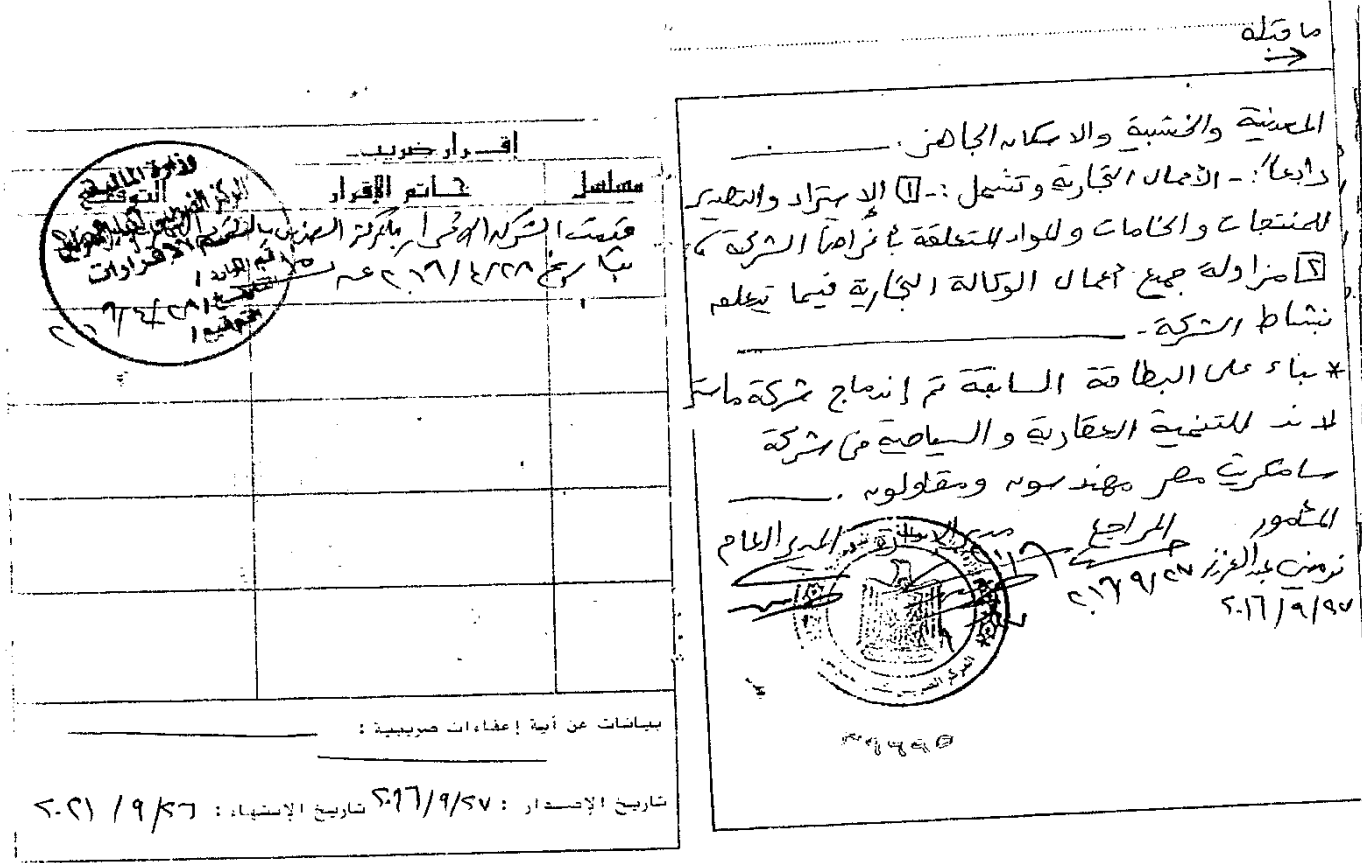 ما قبله
المعدنية والخشبية والاسكان الجاهز.
رابعاً: - الأعمال التجارية وتشمل :- [١] الإستيراد والتصدير
للمنتجات والخامات والمواد المتعلقة بأغراض الشركة،
[٢] مزاولة جميع أعمال الوكالة التجارية فيما يتعلق
نشاط الشركة.
* بناء على البطاقة السابقة تم إندماج شركة ماستر
لاند للتنمية العقارية و السياحية في شركة
سامكريت مصر مهندسون ومقاولون.
المأمور المراجع مدير الإدارة المدير العام
عبدالعزيز ٢٠١٦/٩/٢٧
٢٠١٦/٩/٢٧
إقرار ضريبي
مسلسل خاتم الإقرار التوقيع
قدمت الشركة الاقرار
بتاريخ ٢٠١٩/٤/٢٨ عن
وزارة المالية
الاقرارات
بيانات عن أية إعفاءات ضريبية :
تاريخ الإصدار : ٢٠١٦/٩/٢٧ تاريخ الإنتهاء : ٢٠٢١/٩/٢٦